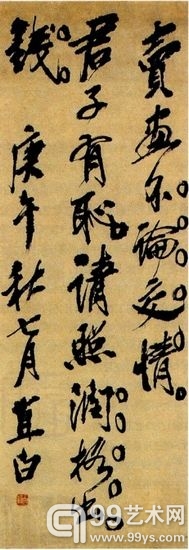 賣畫不論交情。
君子有恥請照潤格出
錢。庚午秋七月直白
99艺术网
www.99ys.com